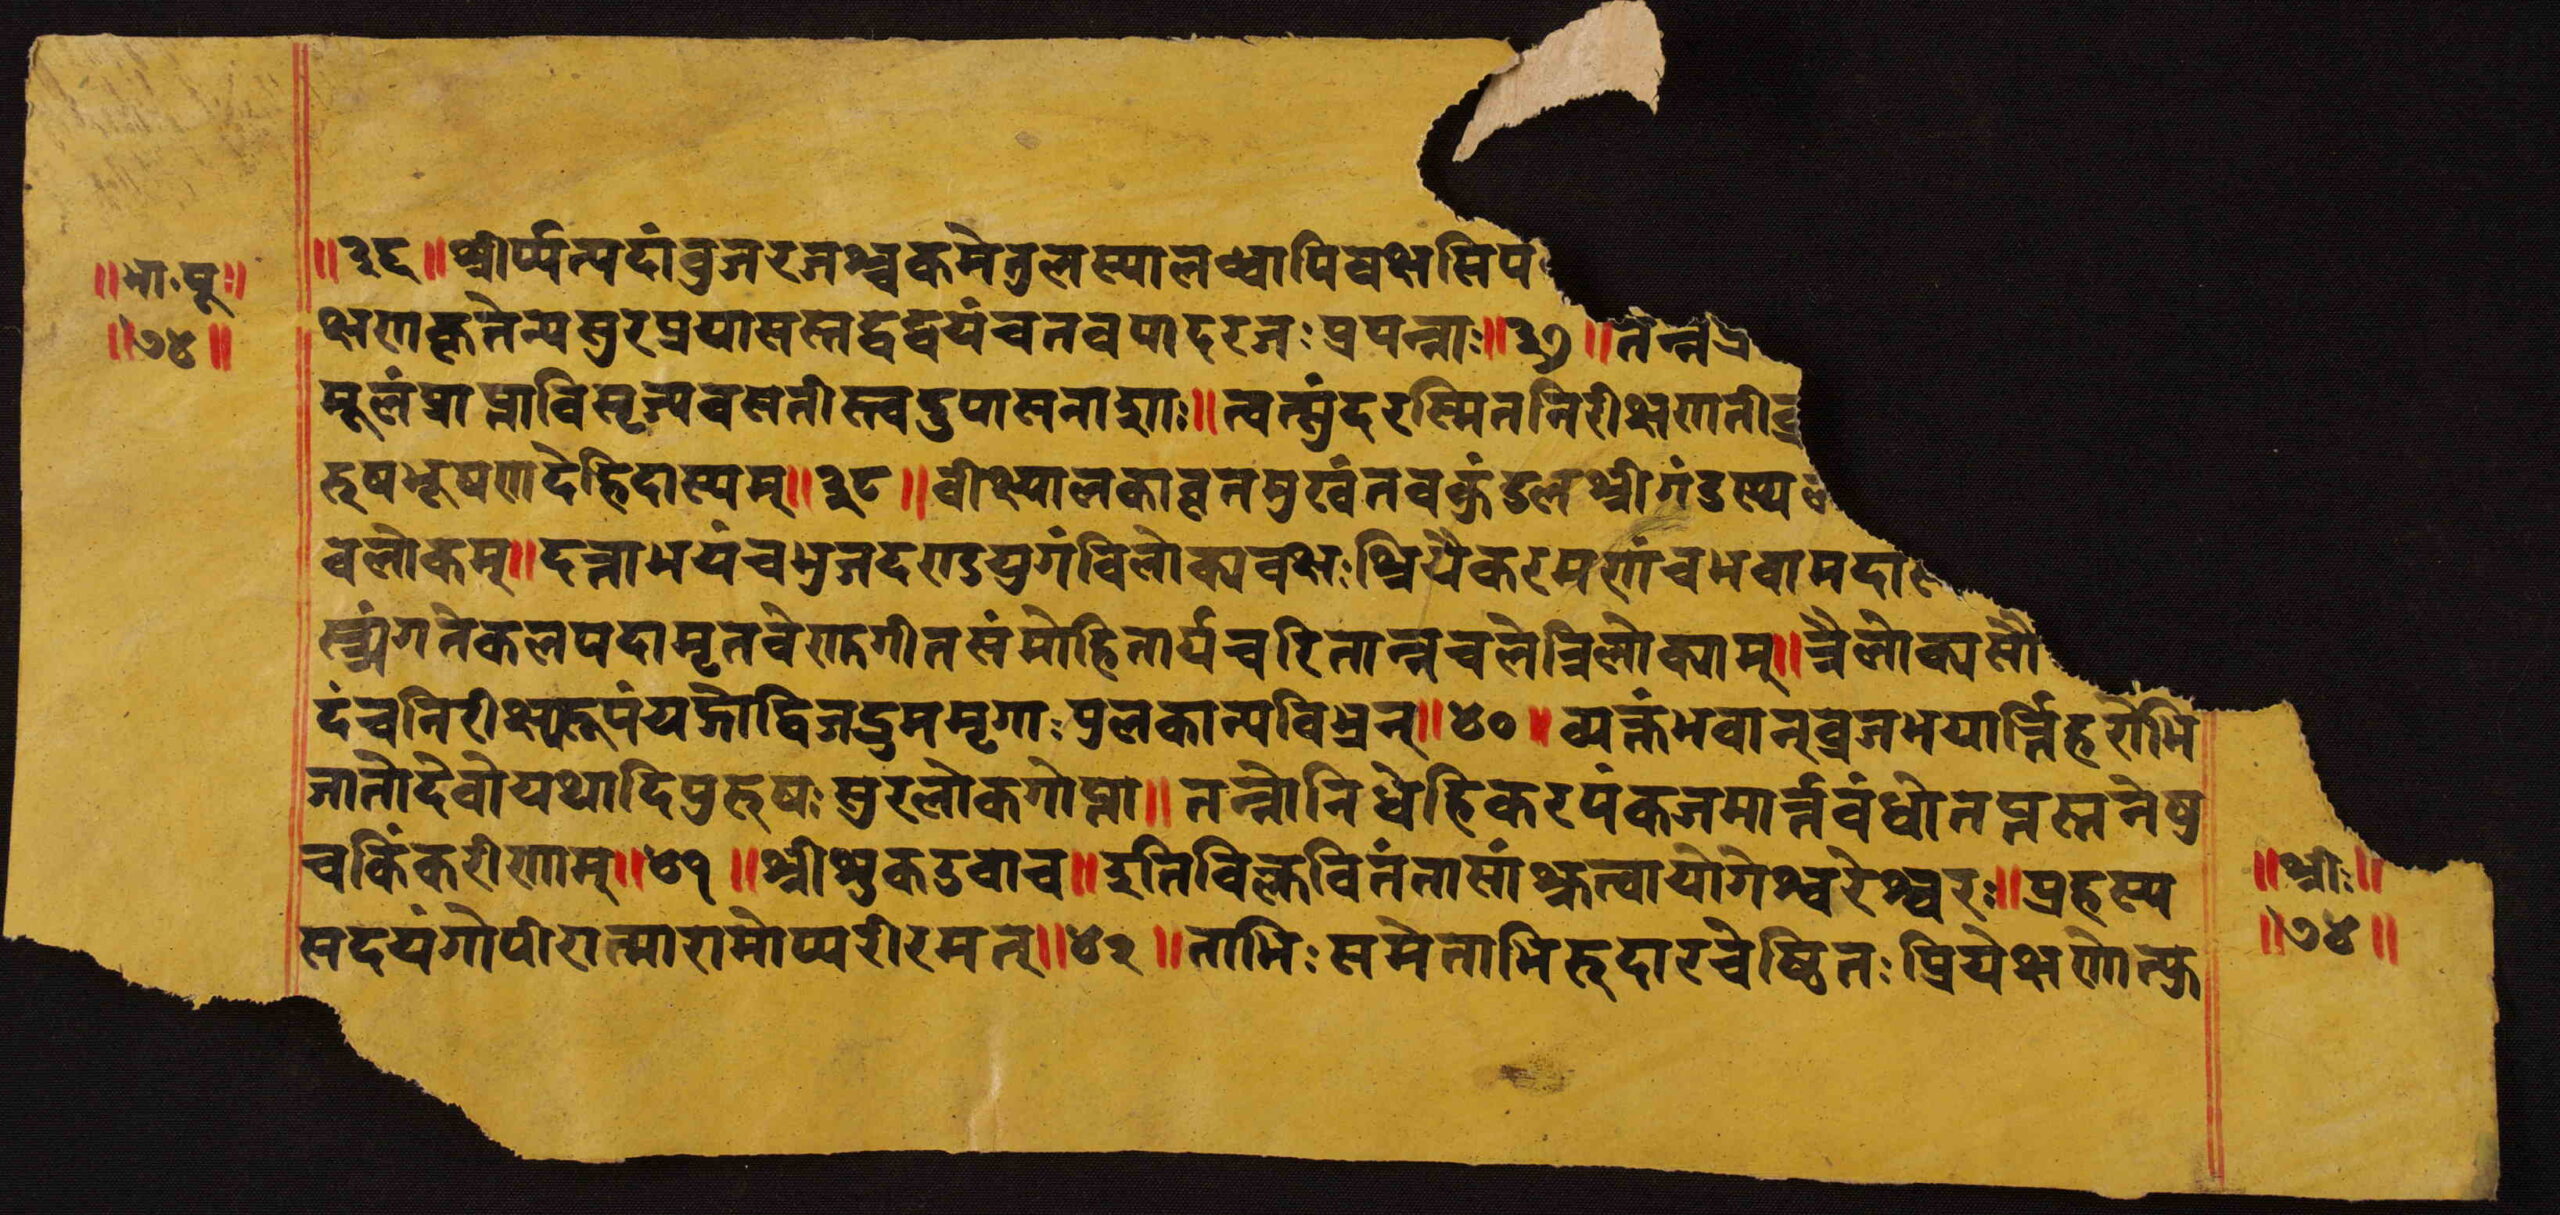 ॥भा॰पू॰॥
॥७४॥
॥३६॥श्रीर्य्यत्पदांवुजरजश्चकमेतुलस्यालब्ध्वापिवक्षसिप
क्षणकृतेन्यसुरप्रयासस्तद्वद्वयंचतवपादरजःप्रपन्नाः॥३७॥तन्नःप्र
मूलंप्राप्ताविसृज्यवसतीस्त्वदुपासनाशाः॥त्वत्सुंदरस्मितनिरीक्षणतीव्र
रुषभूषणदेहिदास्यम्॥३८॥वीक्ष्यालकावृतमुखंतवकुंडलश्रीगंडस्थ
वलोकम्॥दत्ताभयंचभुजदण्डयुगंविलोक्यवक्षःश्रियैकरमणंचभवामदा
स्त्र्यंगतेकलपदामृतवेणुगीतसंमोहितार्यचरितान्नचलेत्त्रिलोक्याम्॥त्रैलोक्यसौ
दंचनिरीक्ष्यरूपंयद्गोद्विजद्रुममृगाःपुलकान्यविभ्रन्॥४०॥व्यक्तंभवान्व्रजभयार्त्तिहरोभि
जातोदेवोयथादिपुरुषःसुरलोकगोप्ता॥तन्नोनिधेहिकरपंकजमार्त्तवंधोतप्तस्तनेषु
चकिंकरीणाम्॥४१॥श्रीशुकउवाच॥इतिविक्लवितंतासांश्रुत्वायोगेश्वरेश्वरः॥प्रहस्य
सदयंगोपीरात्मारामोप्यरीरमत्॥४२॥ताभिःसमेताभिरुदारचेष्टितःप्रियेक्षणोत्फु
॥श्रीः॥
॥७४॥